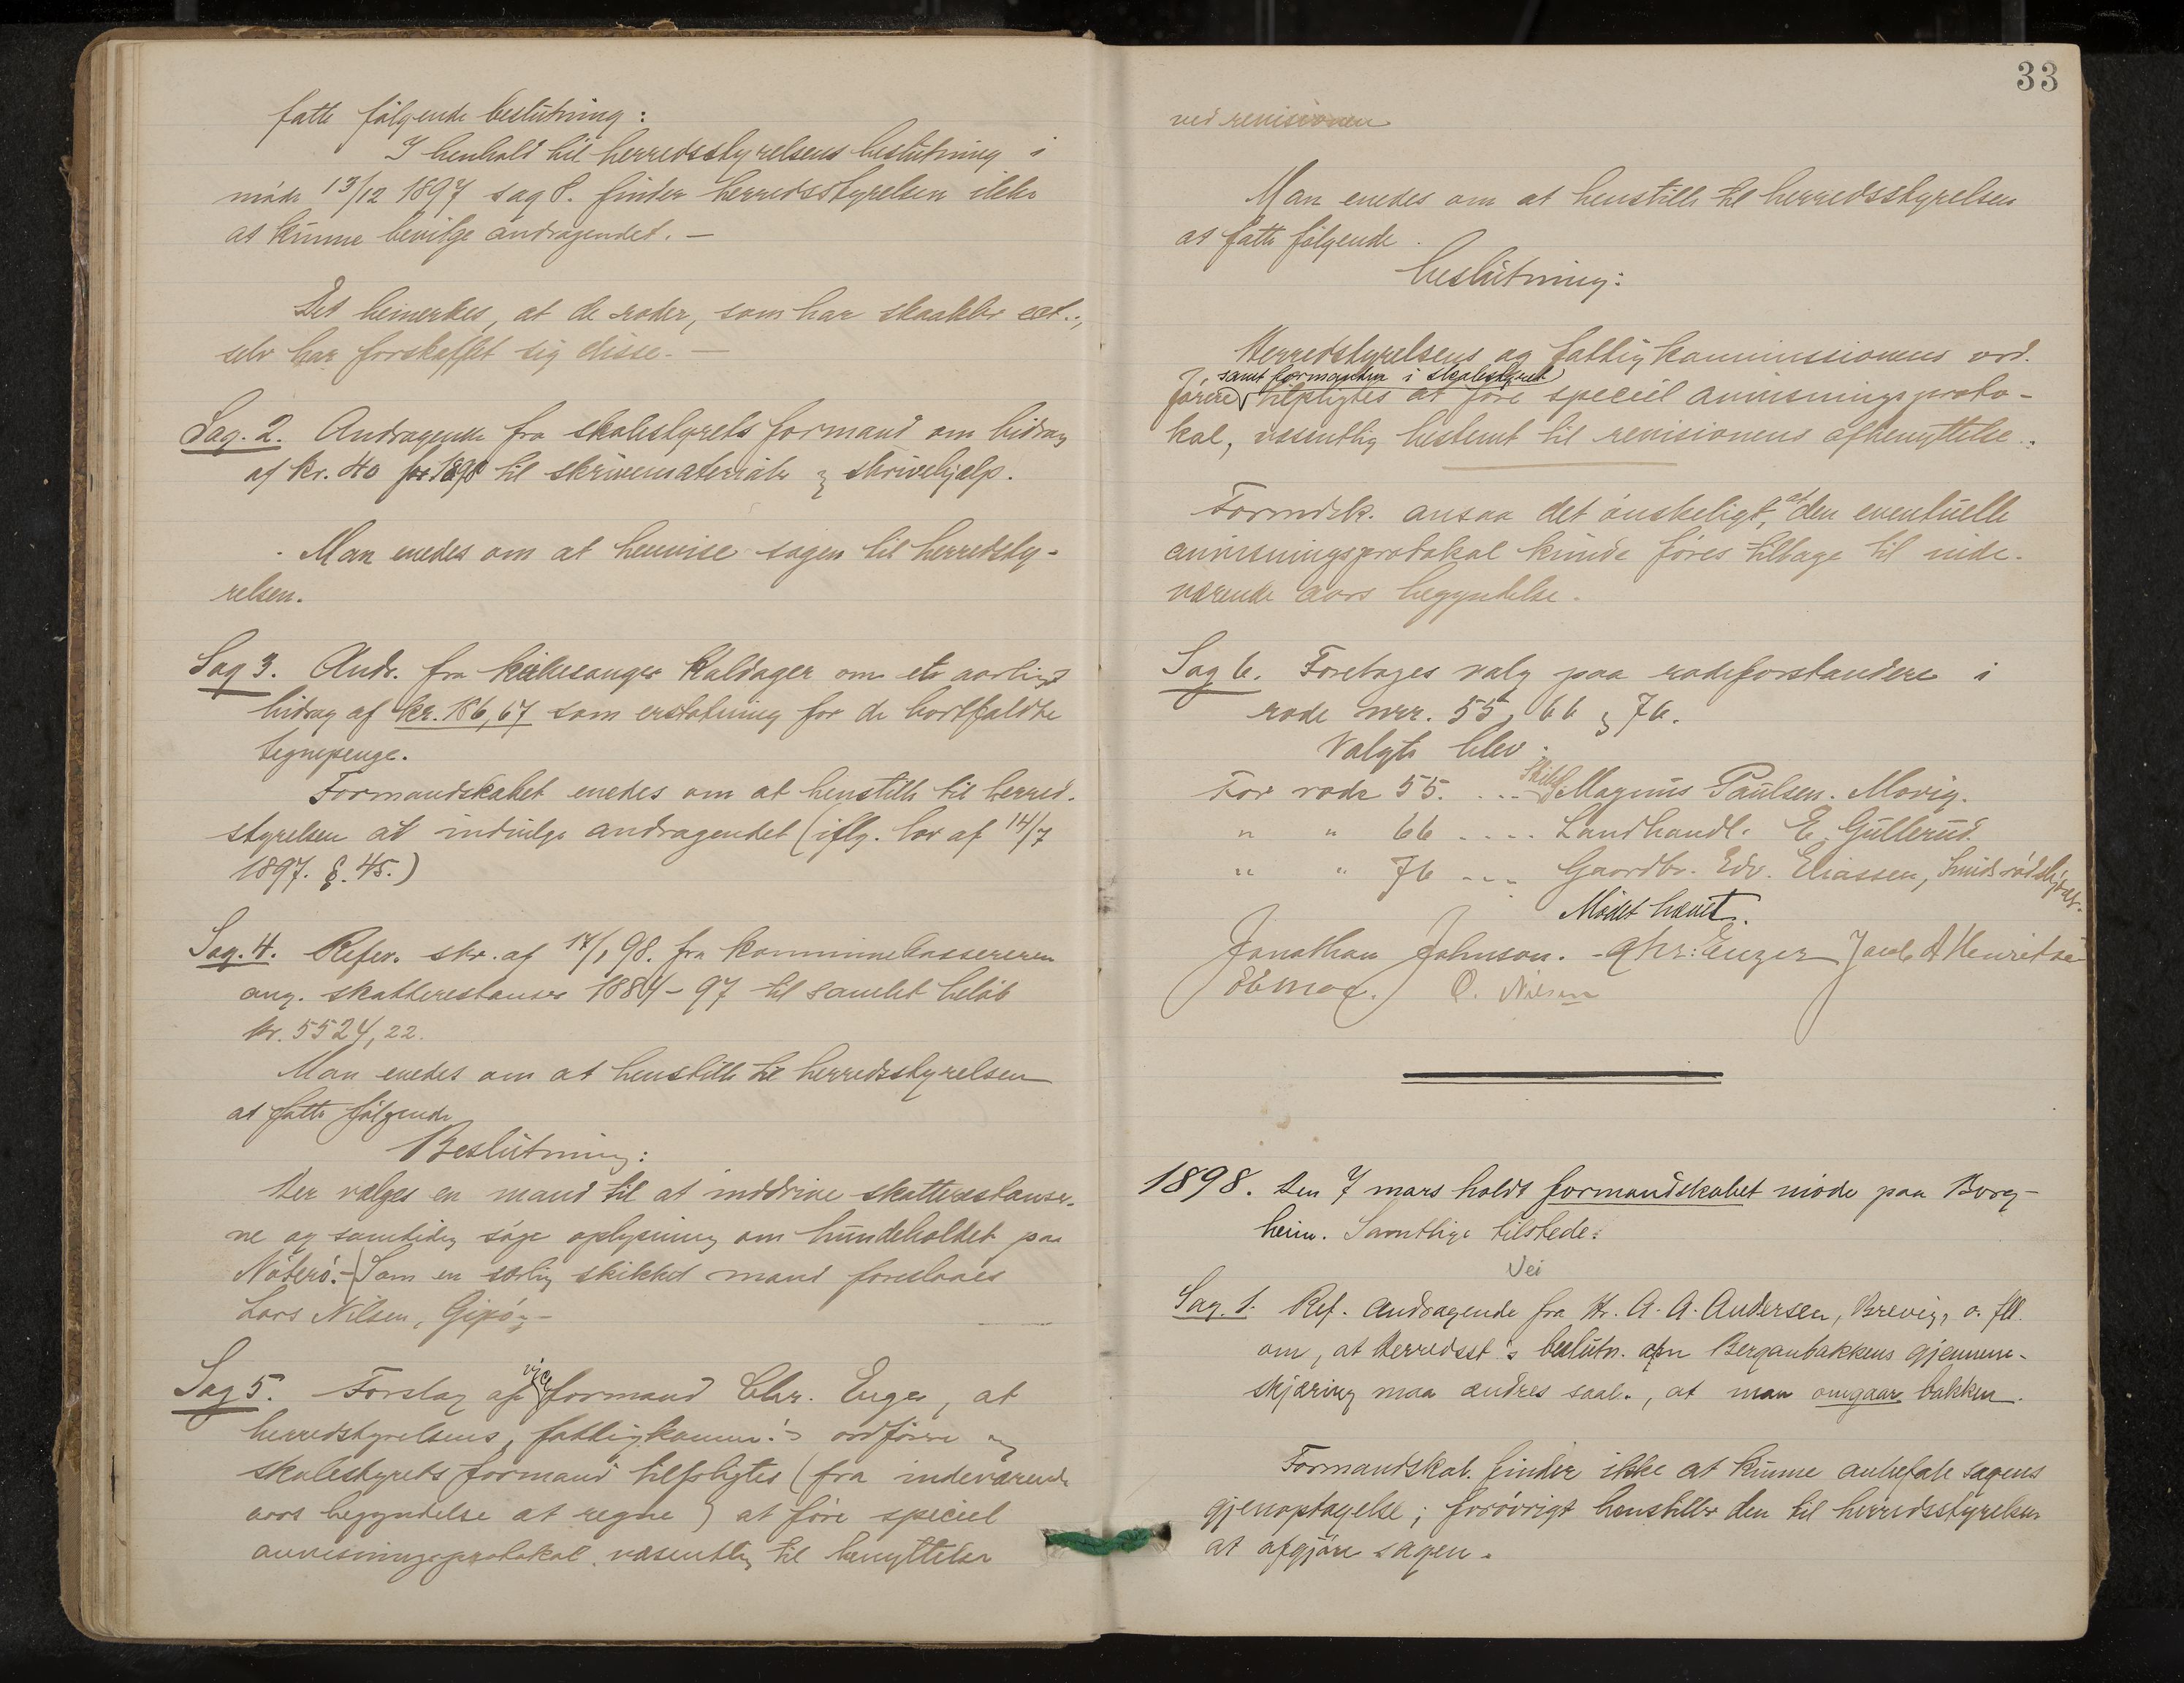 fatte følgende beslutning:
I henhold til herredsstyrelsens beslutning i
møde 13/12 1897 sag 8. finder herredsstyrelsen ikke
at kunne bevilge andragendet. —
Det bemerkes, at de roder, som har skaakler ect.,
selv har forskaffet sig disse. —
Sag. 2. Andragende fra skolestyrets formand om bidrag
af kr. 40 for 1898 til skrivematerialer og skrivehjælp.
Man enedes om at henvise sagen til herredsty-
relsen.
Sag 3. Andr. fra kirkesanger Kaldager om et aarligt
bidrag af kr. 186,67 som erstatning for de bortfaldte
tegnepenge.
Formandskabet enedes om at henstille til herred-
styrelsen at indvilge andragendet (iflg. lov af 14/7
1897. §. 45.)
Sag. 4. Refer. skr. af 14/1 98. fra kommunekassereren
ang. skatterestanser 1884-97 til samlet beløb
kr. 5524,22.
Man enedes om at henstille til herredsstyrelsen
at fatte følgende
Beslutning:
Der vælges en mand til at inddrive skatterestanser-
ne og samtidig søge oplysning om hundeholdet paa
Nøterø. - Som en særlig skikket mand foreslaaes
Lars Nilsen, Gipø. -
Sag 5. Forslag af vice formand Chr. Enger, at
herredstyrelsens, fattigkomm.'s ordfører og
skolestyrets formand tilpligtes (fra indeværende
aars begyndelse at regne) at føre speciel
anvisningsprotokol, væsentlig til benyttelse
33
ved revisionen
Man enedes om at henstille til herredsstyrelsen
at fatte følgende
beslutning:
Herredstyrelsens og fattigkommissionens ord-
samt formanden i skolestyret
førere tilpligtes at føre speciel anvisningsproto-
kol, væsentlig bestemt til revisionens afbenyttelse.
Formdsk. ansaa det ønskeligt, at den eventuelle
anvisningsprotokol kunde føres tilbage til inde-
værende aars begyndelse.
Sag 6. Foretages valg paa rodeforstandere i
rode nrr. 55, 66 og 76.
Valgte blev:
For rode 55. ... Magnus Paulsen. Movig.
" " 66 .... Landhandl. E. Gullerud
" " 76 ... Gaardbr. Edv. Eliassen,
Mødet hævet.
Jonathan Johnson. - Chr: Enger Jacob A Henritsen
O. Nilsen
1898. Den 7 mars holdt formandskabet møde paa Borg-
heim. Samtlige tilstede.
Vei
Sag. 1. Ref. andragende fra Hr. A. A. Andersen, Brevig, o. fl.
om, at Herredsst's beslutn. om Berganbakkens gjennem-
skjæring maa ændres saal., at man omgaar bakken.
Formandskab. finder ikke at kunne anbefale sagens
gjenoptagelse; forøvrigt henstiller den til herredsstyrelsen
at afgjøre sagen.